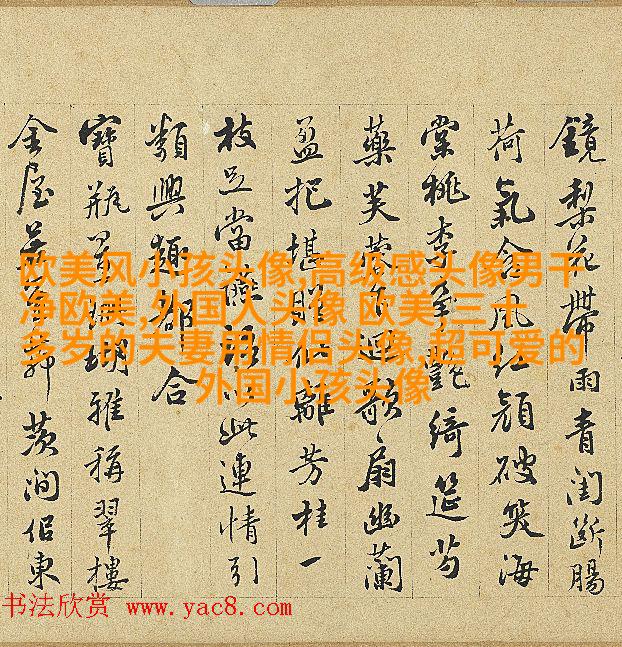 鏡梨花帶雨青閨斷腸
荷氣含風紅顔破笑海
棠桃李爭艷綺筵芍
藥芙蓉迎歌扇幽蘭
盈把堪贈佀離芳桂一
枝足當以此連情引
類興趣都合
寶瓶珊瑚雅稱翠樓
金屋澗佀東
欧美风小孩头像,高级感头像男干
净欧美,外国人头像 欧美,三十
多岁的夫妻用情侣头像,超可爱的
外国小孩头像
书法欣赏 www.yac8.com